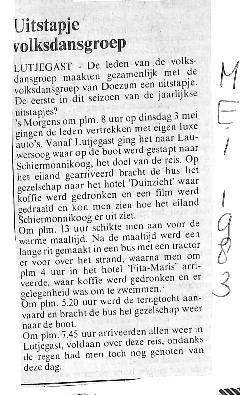 Uitstapje
volksdansgroep
LUTJEGAST - De leden van de volks-
dansgroep maakten gezamenlijk met de
volksdansgroep van Doezum een uitstapje.
De eerste in dit seizoen van de jaarlijkse
uitstapjes.
's Morgens om plm. 8 uur op dinsdag 3 mei
gingen de leden vertrekken met eigen luxe
auto's. Vanaf Lutjegast ging het naar Lau-
wersoog waar op de boot werd gestapt naar
Schiermonnikoog, het doel van de reis. Op
het eiland gearriveerd bracht de bus het
gezelschap naar het hotel 'Duinzicht' waar
koffie werd gedronken en een film werd
gedraaid en kon men zien hoe het eiland
Schiermonnikoog er uit ziet.
Om plm. 13 uur schikte men aan voor de
warme maaltijd. Na de maaltijd werd een
lange rit gemaakt in een bus met een tractor
er voor over het strand, waarna men om
plm 4 uur in het hotel 'Fita-Maris' arri-
veerde, waar koffie werd gedronken en er
gelegenheid was om te zwemmen.
Om plm. 5.20 uur werd de terugtocht aan-
vaard en bracht de bus het gezelschap weer
naar de boot.
Om plm. 7.45 uur arriveerden allen weer in
Lutjegast, voldaan over deze reis, ondanks
de regen had men toch nog genoten van
deze dag.
MEI 1983